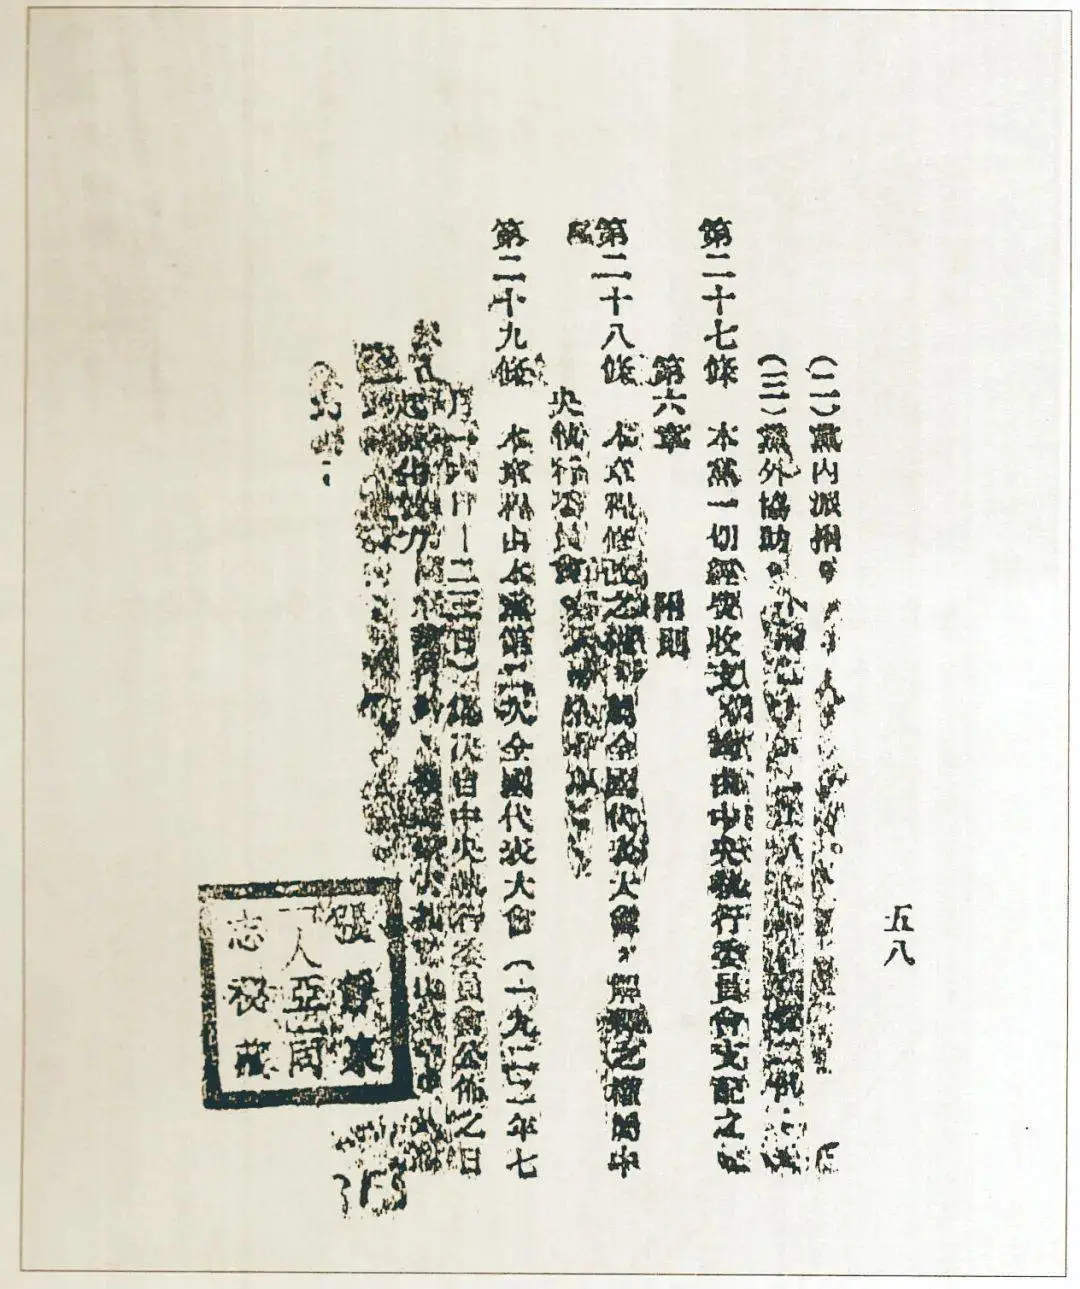 五八
(二)黨內派捐。
(三)黨外協助。
第二十七條 本黨一切經費收支,均由中央執行委員會支配之。
第六章 附則
第二十八條 本章程修改之權,屬全國代表大會,解釋之權屬中
央執行委員會。
第二十九條 本章程由本黨第二次全國代表大會(一九二二年七
月一六日—二三日)議決自中央執行委員會公佈之日
起發生效力
張靜泉
人亞同
志秘藏